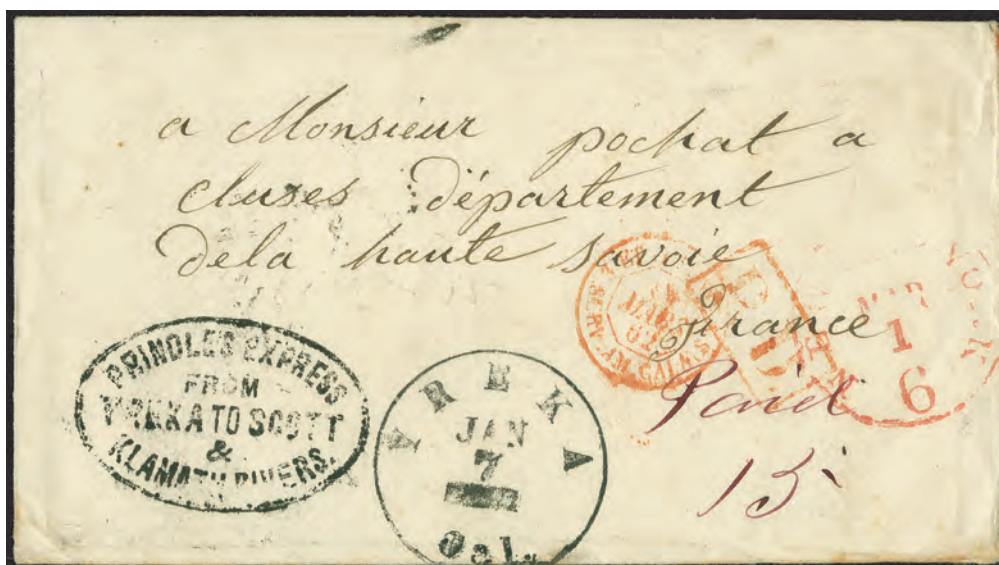 a Monsieur pochat a
cluses département
dela haute savoie
France
Paid
15
PRINDLE'S EXPRESS
FROM
YREKA TO SCOTT
&
KLAMATH RIVERS.
YREKA
JAN
7
Cal.
MARS
62
CALAIS
PD
MAR
1
6